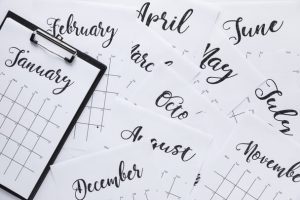 February
April
June
January
Marc
May
July
Octo
August
November
December